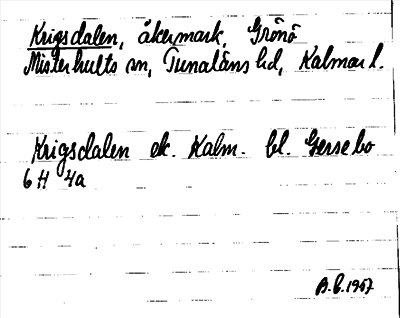 Krigsdalen, åkermark, Grönö
Misterhults sn, Tunaläns hd, Kalmar l.
Krigsdalen ek. Kalm. bl. Gersebo
6 H 4a
B.C. 1957